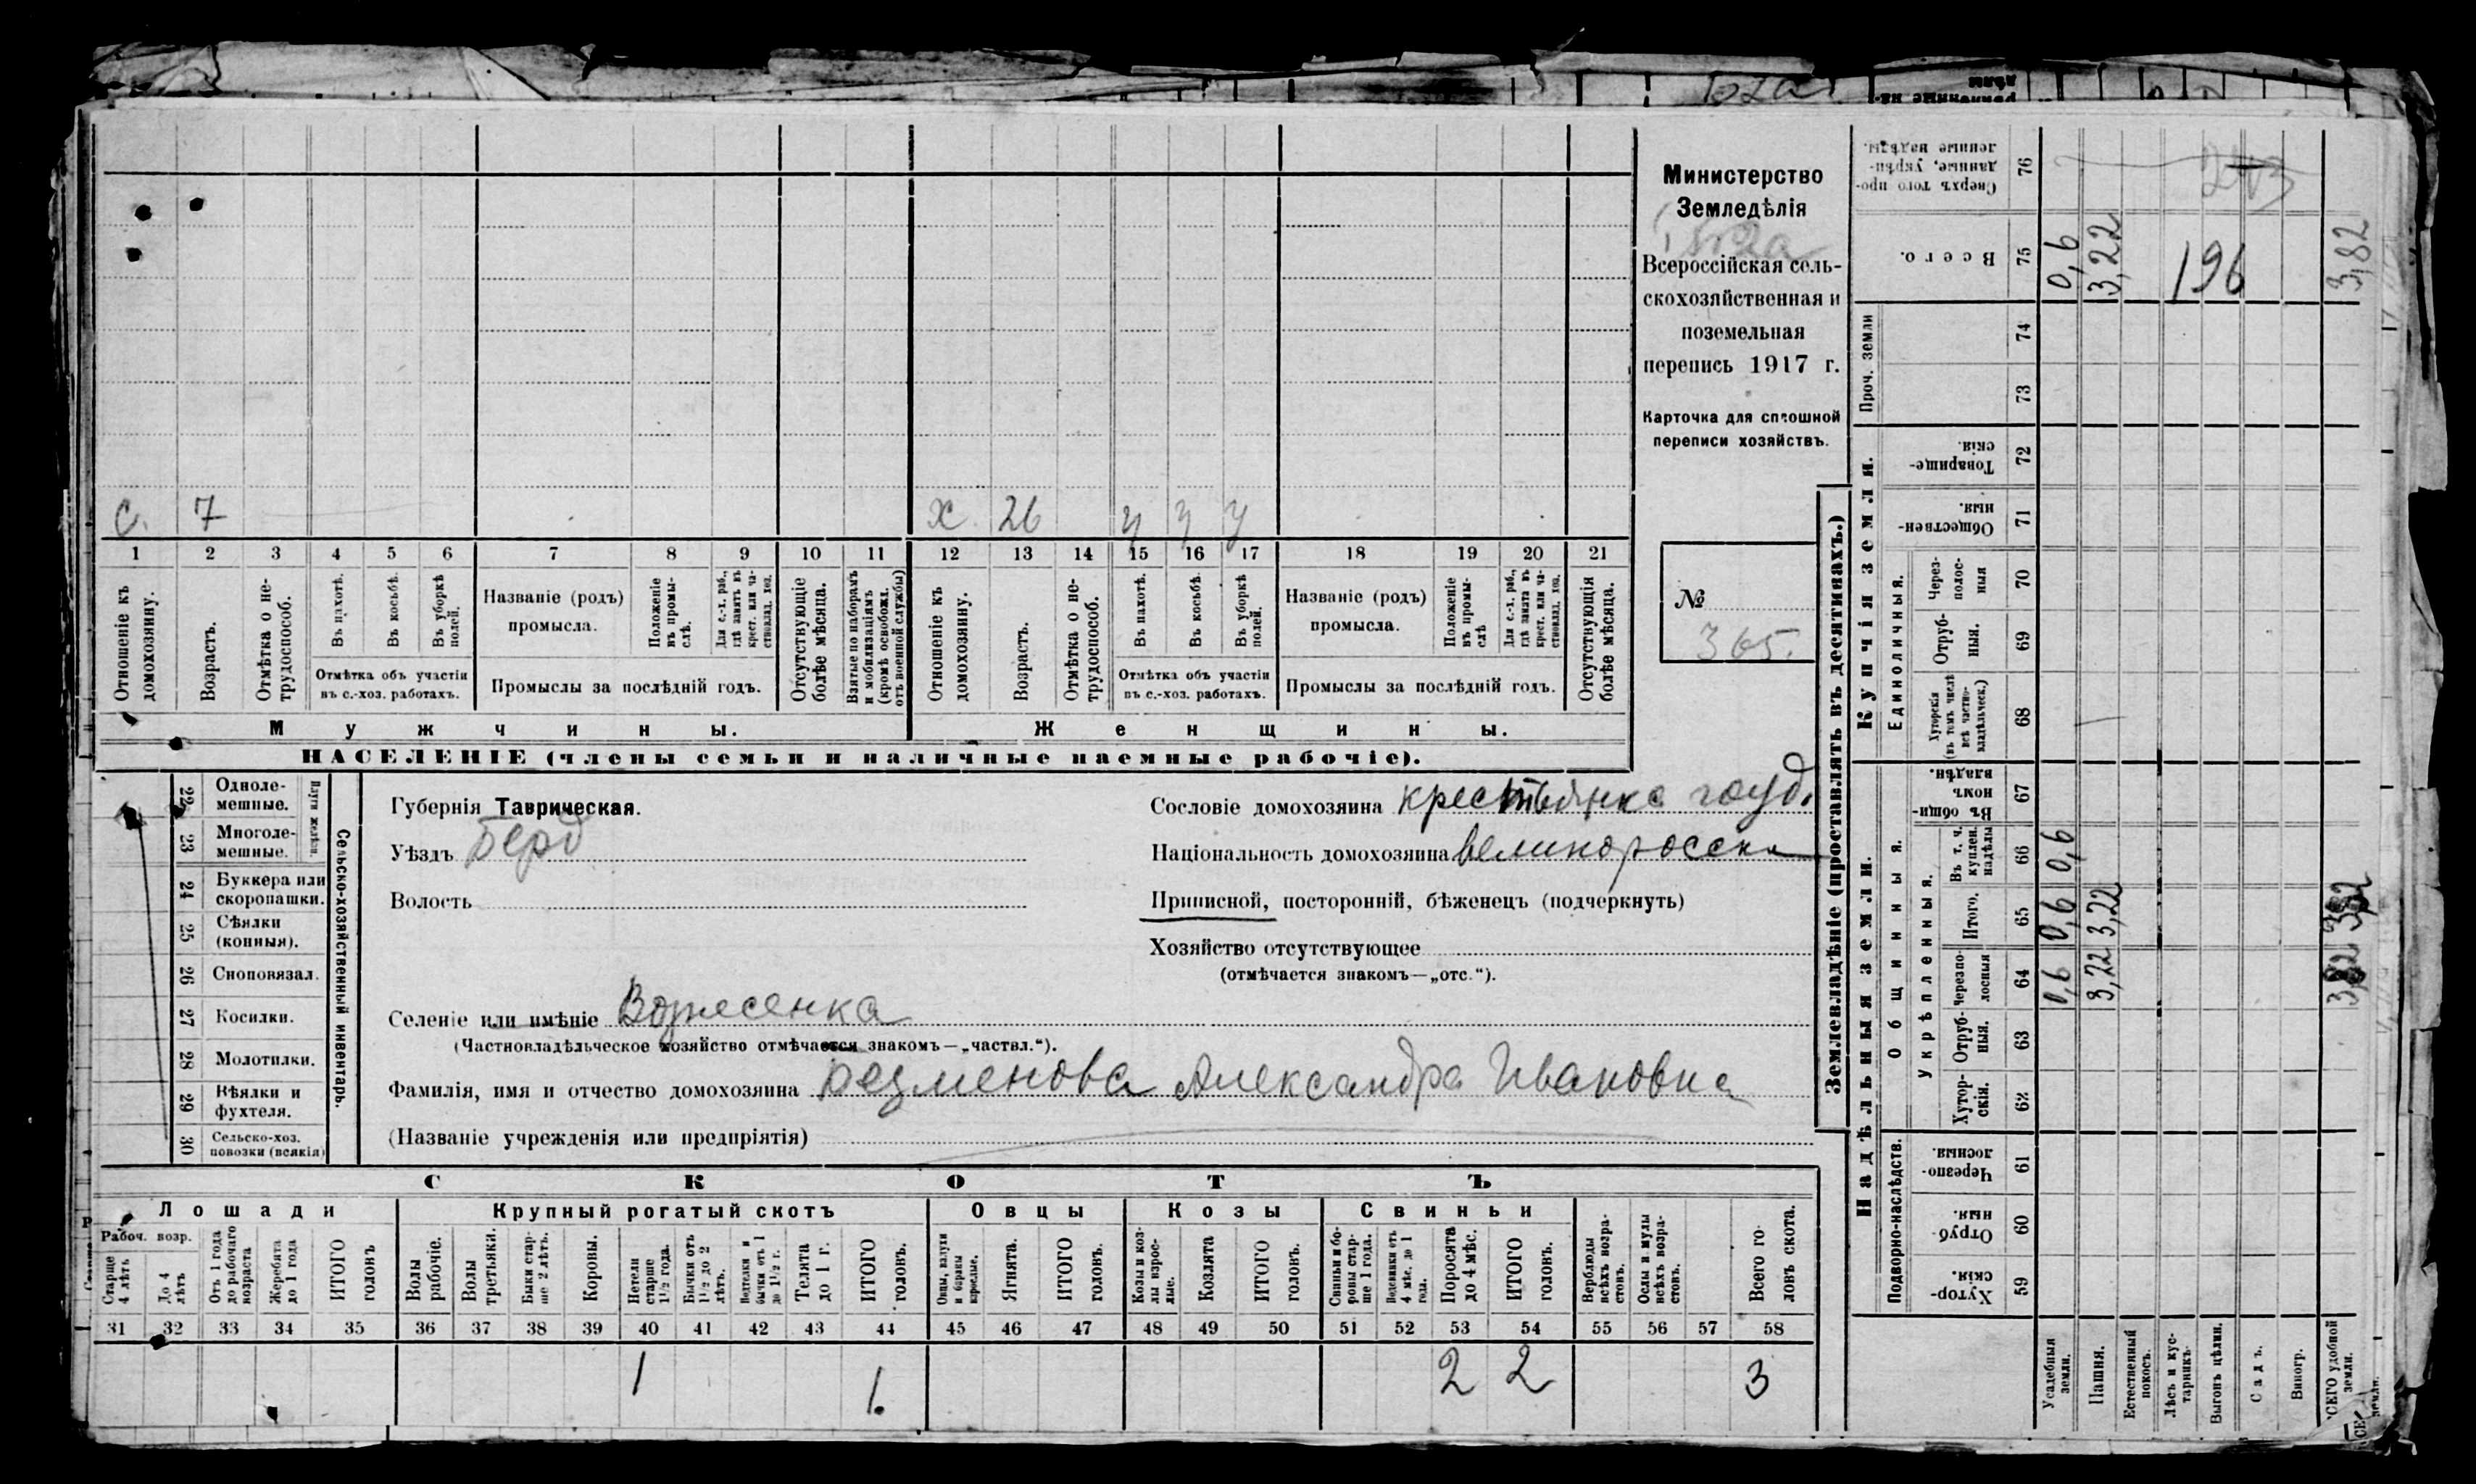 Министерство
Земледѣлія
Всероссійская сель-
скохозяйственная и
поземельная
перепись 1917 г.
Карточка для сплошной
переписи хозяйствъ.
№
365.
с. 7
х 26 у у у
1 2 3 4 5 6 7 8 9 10 11 12 13 14 15 16 17 18 19 20 21
Отношеніе къ домохозяину.
Возрастъ.
Отмѣтка о не-трудоспособ.
Въ пахотѣ.
Въ косьбѣ.
Въ уборкѣ полей.
Отмѣтка объ участіи
въ с.-хоз. работахъ.
Названіе (родъ)
промысла.
Положеніе въ промы-слѣ.
Для с.-х. раб., гдѣ занятъ въ крест. или ча-стновлад. хоз.
Промыслы за послѣдній годъ.
Отсутствующіе болѣе мѣсяца.
Взятые по наборамъ и мобилизаціямъ (кромѣ освобожд. отъ военной службы)
Отношеніе къ домохозяину.
Возрастъ.
Отмѣтка о не-трудоспособ.
Въ пахотѣ.
Въ косьбѣ.
Въ уборкѣ полей.
Отмѣтка объ участіи
въ с.-хоз. работахъ.
Названіе (родъ)
промысла.
Положеніе въ промы-слѣ
Для с.-х. раб., гдѣ занята въ крест. или ча-стновлад. хоз.
Промыслы за послѣдній годъ.
Отсутствующія болѣе мѣсяца.
Мужчины.
Женщины.
НАСЕЛЕНІЕ (члены семьи и наличные наемные рабочіе).
22 Одноле-мешные.
23 Многоле-мешные.
Плуги желѣзн.
24 Буккера или скоропашки.
25 Сѣялки (конныя).
26 Сноповязал.
27 Косилки.
28 Молотилки.
29 Вѣялки и фухтеля.
30 Сельско-хоз. повозки (всякія)
Сельско-хозяйственный инвентарь.
Губернія Таврическая.
Уѣздъ Берд
Волость
Сословіе домохозяина крестьянка
Національность домохозяина великоросска
Приписной, посторонній, бѣженецъ (подчеркнуть)
Хозяйство отсутствующее
(отмѣчается знакомъ—„отс.“).
Селеніе или имѣніе Вознесенка
(Частновладѣльческое хозяйство отмѣчается знакомъ—„частвл.“).
Фамилія, имя и отчество домохозяина Безменова Александра Ивановна
(Названіе учрежденія или предпріятія)
СКОТЪ
Лошади
Крупный рогатый скотъ
Овцы
Козы
Свиньи
Рабоч. возр.
Старше 4 лѣтъ
До 4 лѣтъ
Отъ 1 года до рабочаго возраста
Жеребята до 1 года
ИТОГО головъ
Волы рабочіе.
Волы третьяки.
Быки стар-ше 2 лѣтъ.
Коровы.
Нетели старше 1½ года.
Бычки отъ 1½ до 2 лѣтъ.
Нетелки и бычки отъ 1 до 1½ г.
Телята до 1 г.
ИТОГО головъ.
Овцы, валухи и бараны взрослые.
Ягнята.
ИТОГО головъ.
Козы и коз-лы взрос-лые.
Козлята
ИТОГО головъ.
Свиньи и бо-ровы стар-ше 1 года.
Подсвинки отъ 4 мѣс. до 1 года.
Поросята до 4 мѣс.
ИТОГО головъ.
Верблюды всѣхъ возра-стовъ.
Ослы и мулы всѣхъ возра-стовъ.
Всего го-ловъ скота.
31 32 33 34 35 36 37 38 39 40 41 42 43 44 45 46 47 48 49 50 51 52 53 54 55 56 57 58
1 1. 2 2 3
Землевладѣніе (проставлять въ десятинахъ.)
Надѣльныя земли.
Купчія земли.
Проч. земли
Подворно-наслѣдств.
Общинныя.
Укрѣпленныя.
Единоличныя.
Сверхъ того про-данные, укрѣп-ленные надѣлы. 76
Всего. 75 0,6 3,22 196 3,82
74
73
Товарище-скія. 72
Обществен-ныя. 71
Через-полос-ныя 70
Отруб-ныя. 69
Хуторскія (въ томъ числѣ всѣ частно-владѣльческ.) 68
Въ общи-номъ владѣн. 67
Въ т. ч. куплен. надѣлы 66 0,6
Итого. 65 0,6 3,22 3,82
Черезпо-лосныя 64 0,6 3,22 3,82
Отруб-ныя. 63
Хутор-скія. 62
Черезпо-лосныя. 61
Отруб-ныя. 60
Хутор-скія. 59
Усадебныя земли.
Пашня.
Естественный покосъ.
Лѣсъ и кус-тарникъ.
Выгонъ цѣлин.
Садъ.
Виногр.
ВСЕГО удобной земли.